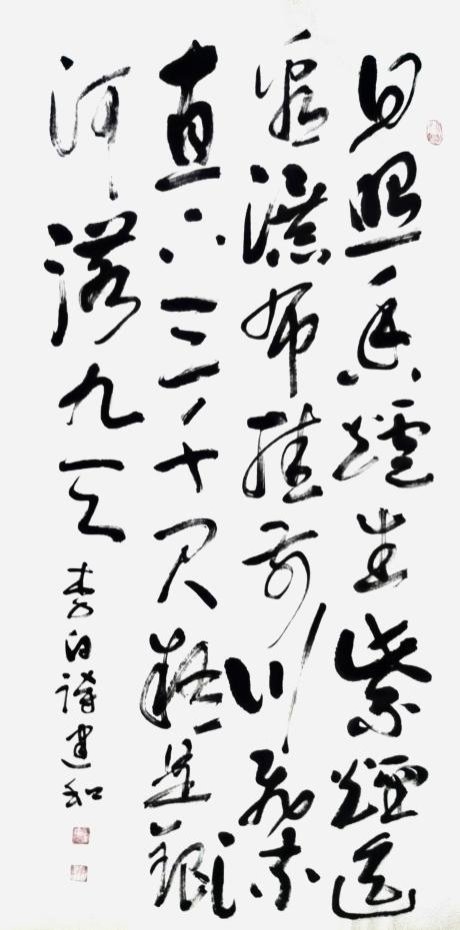 日照香爐生紫煙遙
看瀑布挂前川飛流
直下三千尺疑是銀
河落九天
李白詩建和